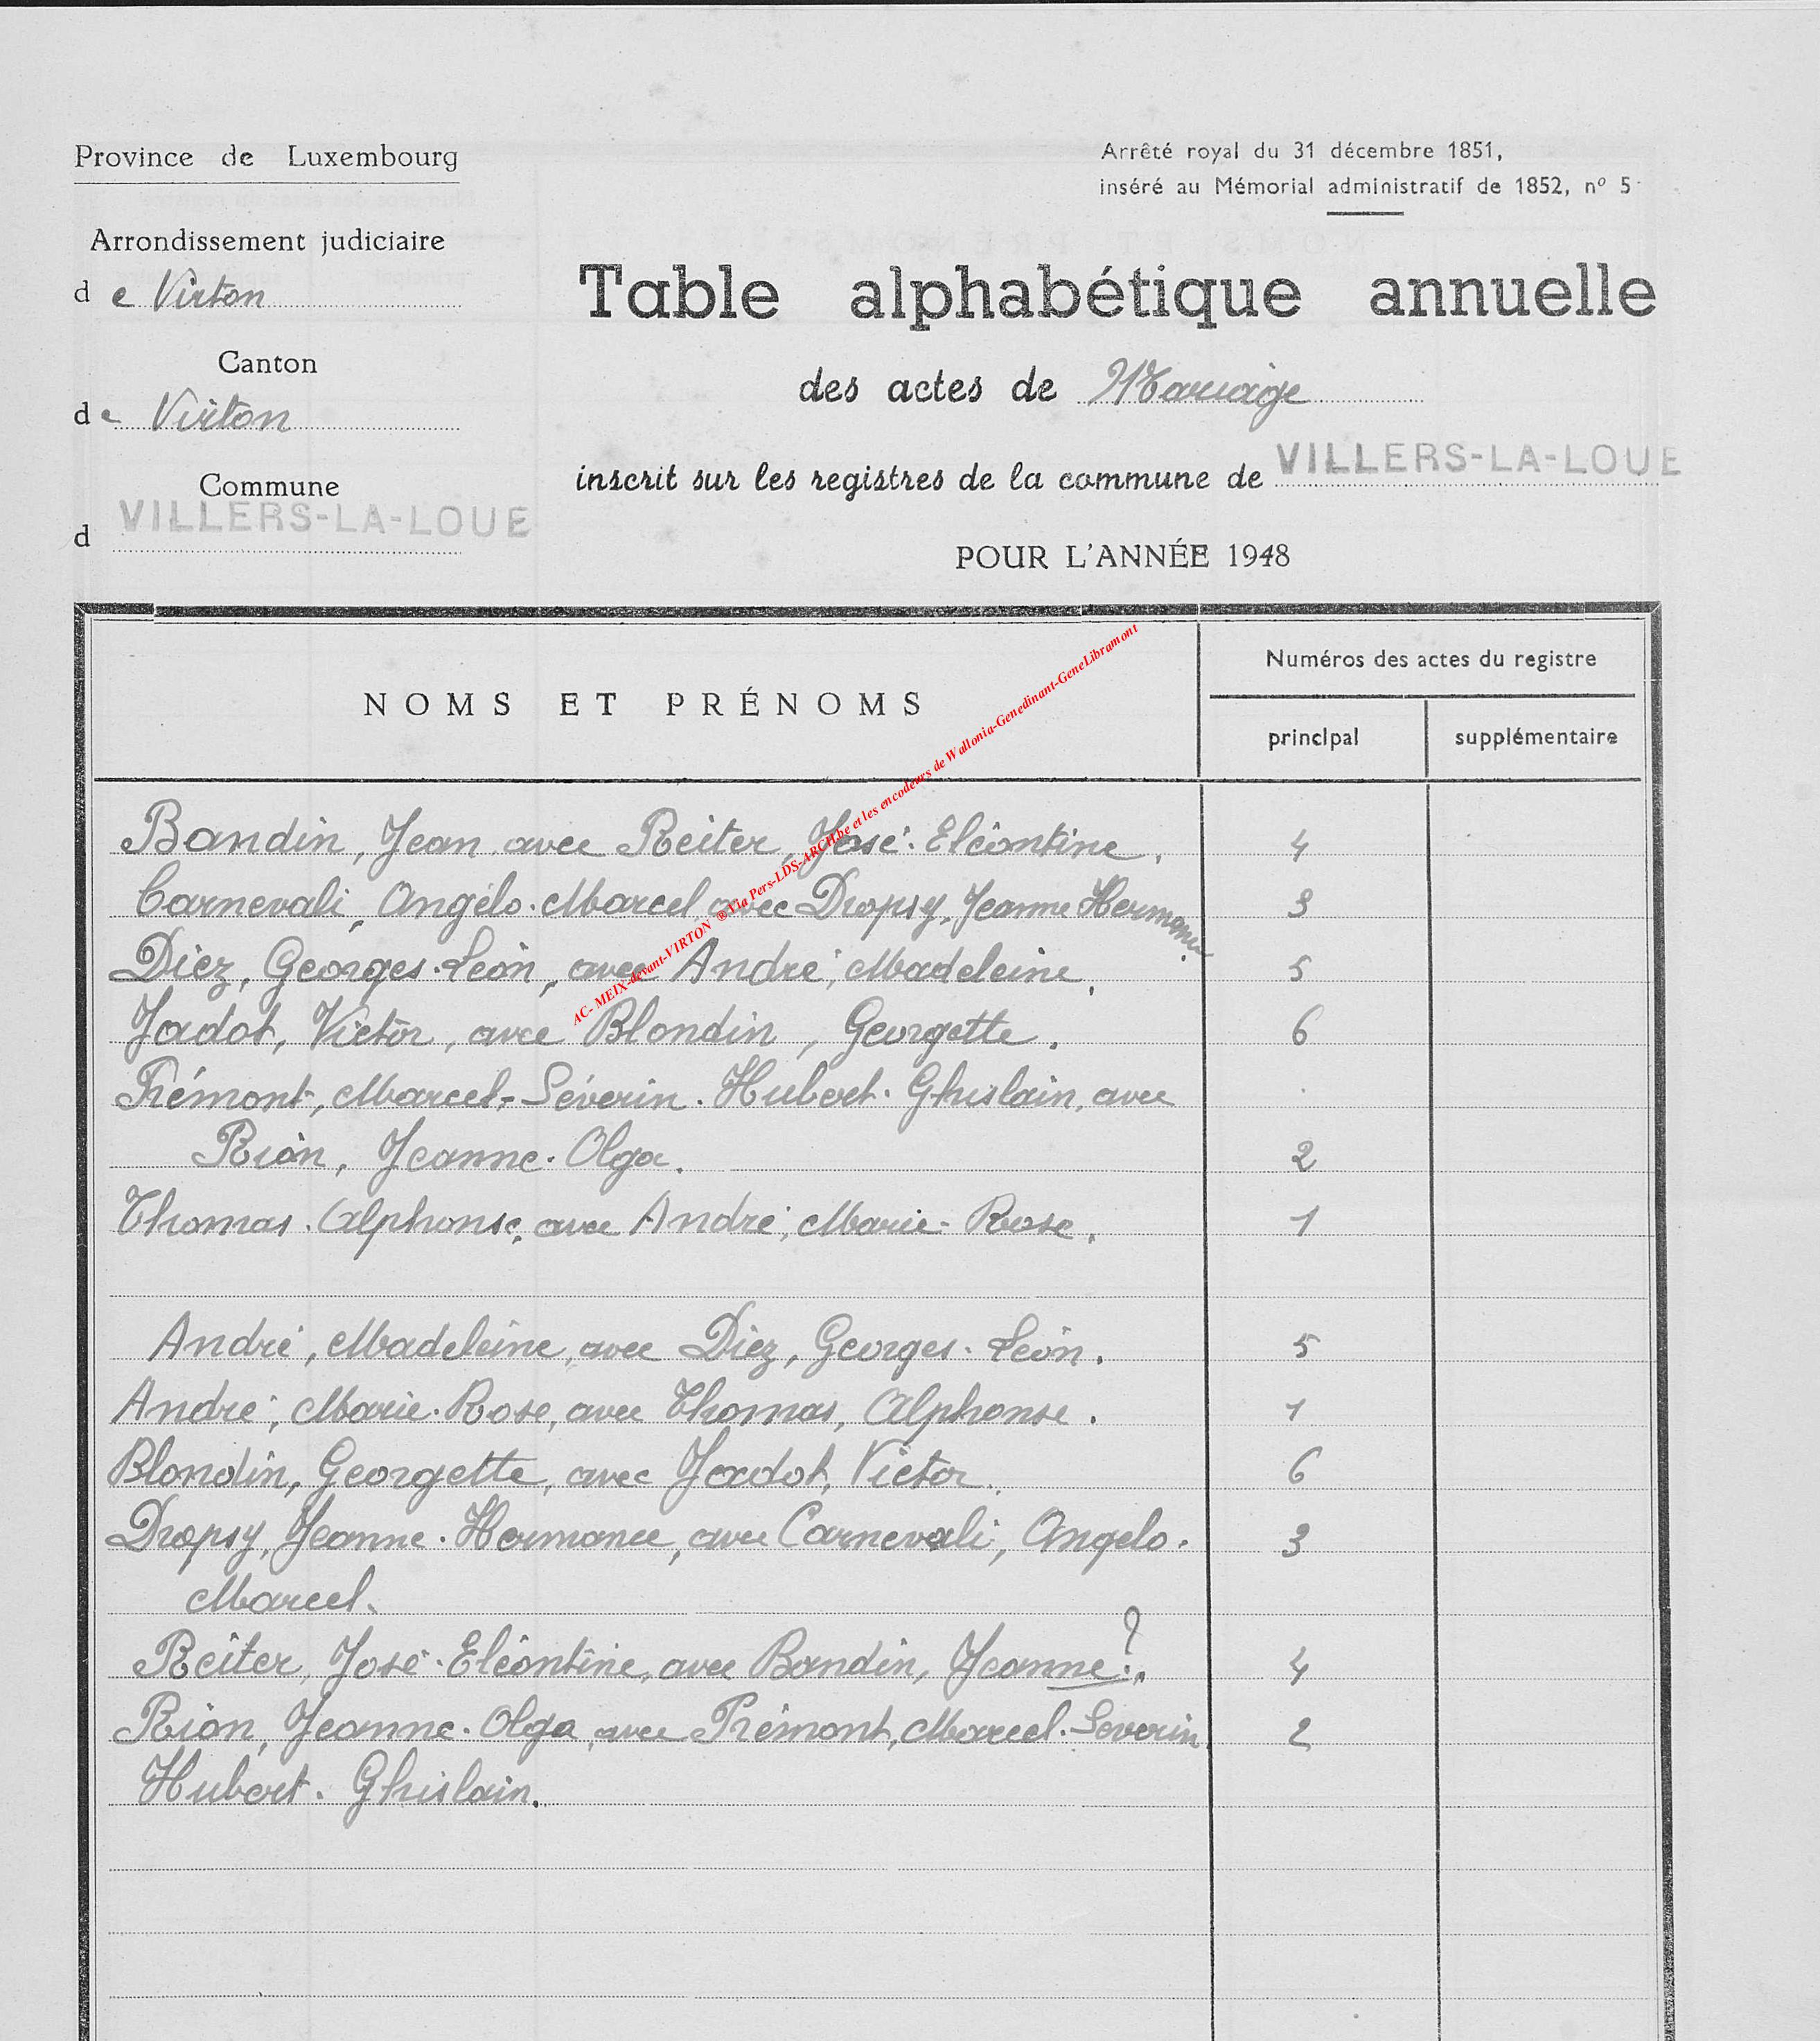 Province de Luxembourg
Arrêté royal du 31 décembre 1851,
inséré au Mémorial administratif de 1852, nº 5
Arrondissement judiciaire
d e Virton
Table alphabétique annuelle
Canton
de Virton
des actes de Mariage
Commune
d VILLERS-LA-LOUE
inscrit sur les registres de la commune de VILLERS-LA-LOUE
POUR L'ANNÉE 1948
NOMS ET PRÉNOMS
Numéros des actes du registre
principal
supplémentaire
AC- MEIX-devant-VIRTON ®Via Pers-LDS-ARCH.be et les encodeurs de Wallonia-Genedinant-GeneLibramont
Bandin, Jean avec Reiter, José. Eléontine. 4
Carnevali, Angélo. Marcel, avec Dropsy, Jeanne Hermance. 3
Diez, Georges. Léon, avec André, Madeleine. 5
Jadot, Victor, avec Blondin, Georgette. 6
Prémont, Marcel-Séverin. Hubert. Ghislain, avec
Rion, Jeanne. Olga. 2
Thomas. Alphonse, avec André, Marie-Rose. 1
André, Madeleine, avec Diez, Georges. Léon. 5
André, Marie.Rose, avec Thomas, Alphonse. 1
Blondin, Georgette, avec Jadot, Victor. 6
Dropsy, Jeanne. Hermance, avec Carnevali, Angelo. 3
Marcel.
Reiter, José. Eléontine, avec Bandin, Jeanne. ? 4
Rion, Jeanne. Olga, avec Prémont, Marcel. Severin 2
Hubert. Ghislain.